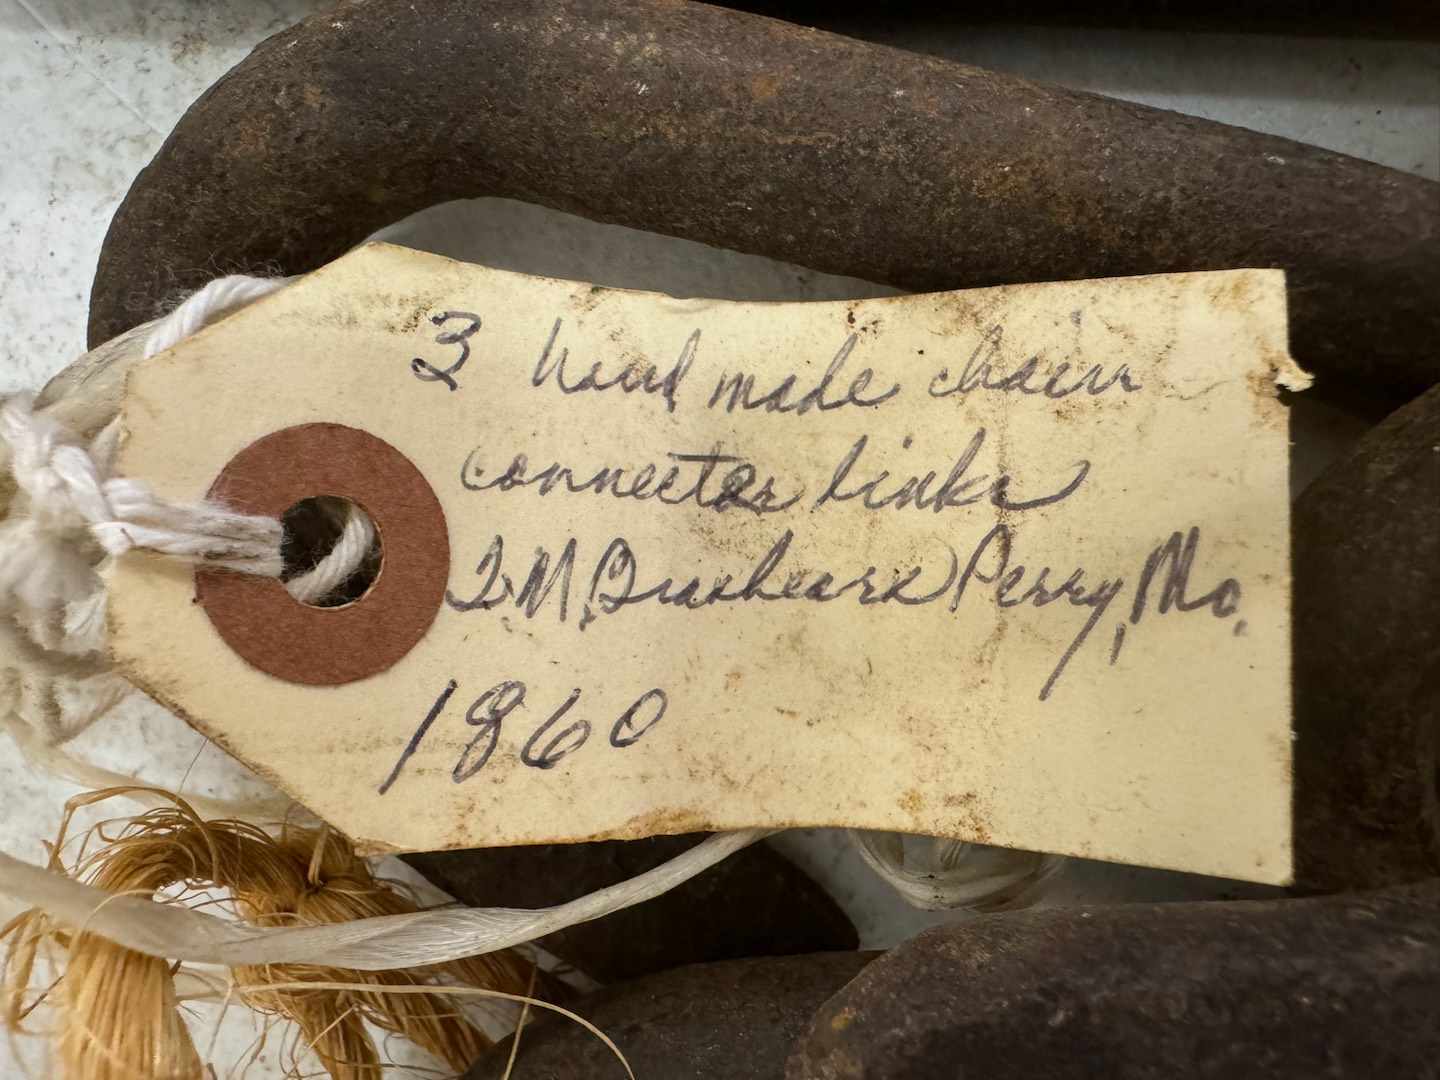 3 hand made chain
connector links
J.M. Brashears Perry, Mo.
1860